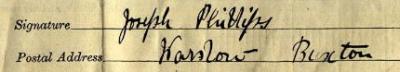 Signature Joseph Phillips
Postal Address Warslow Buxton